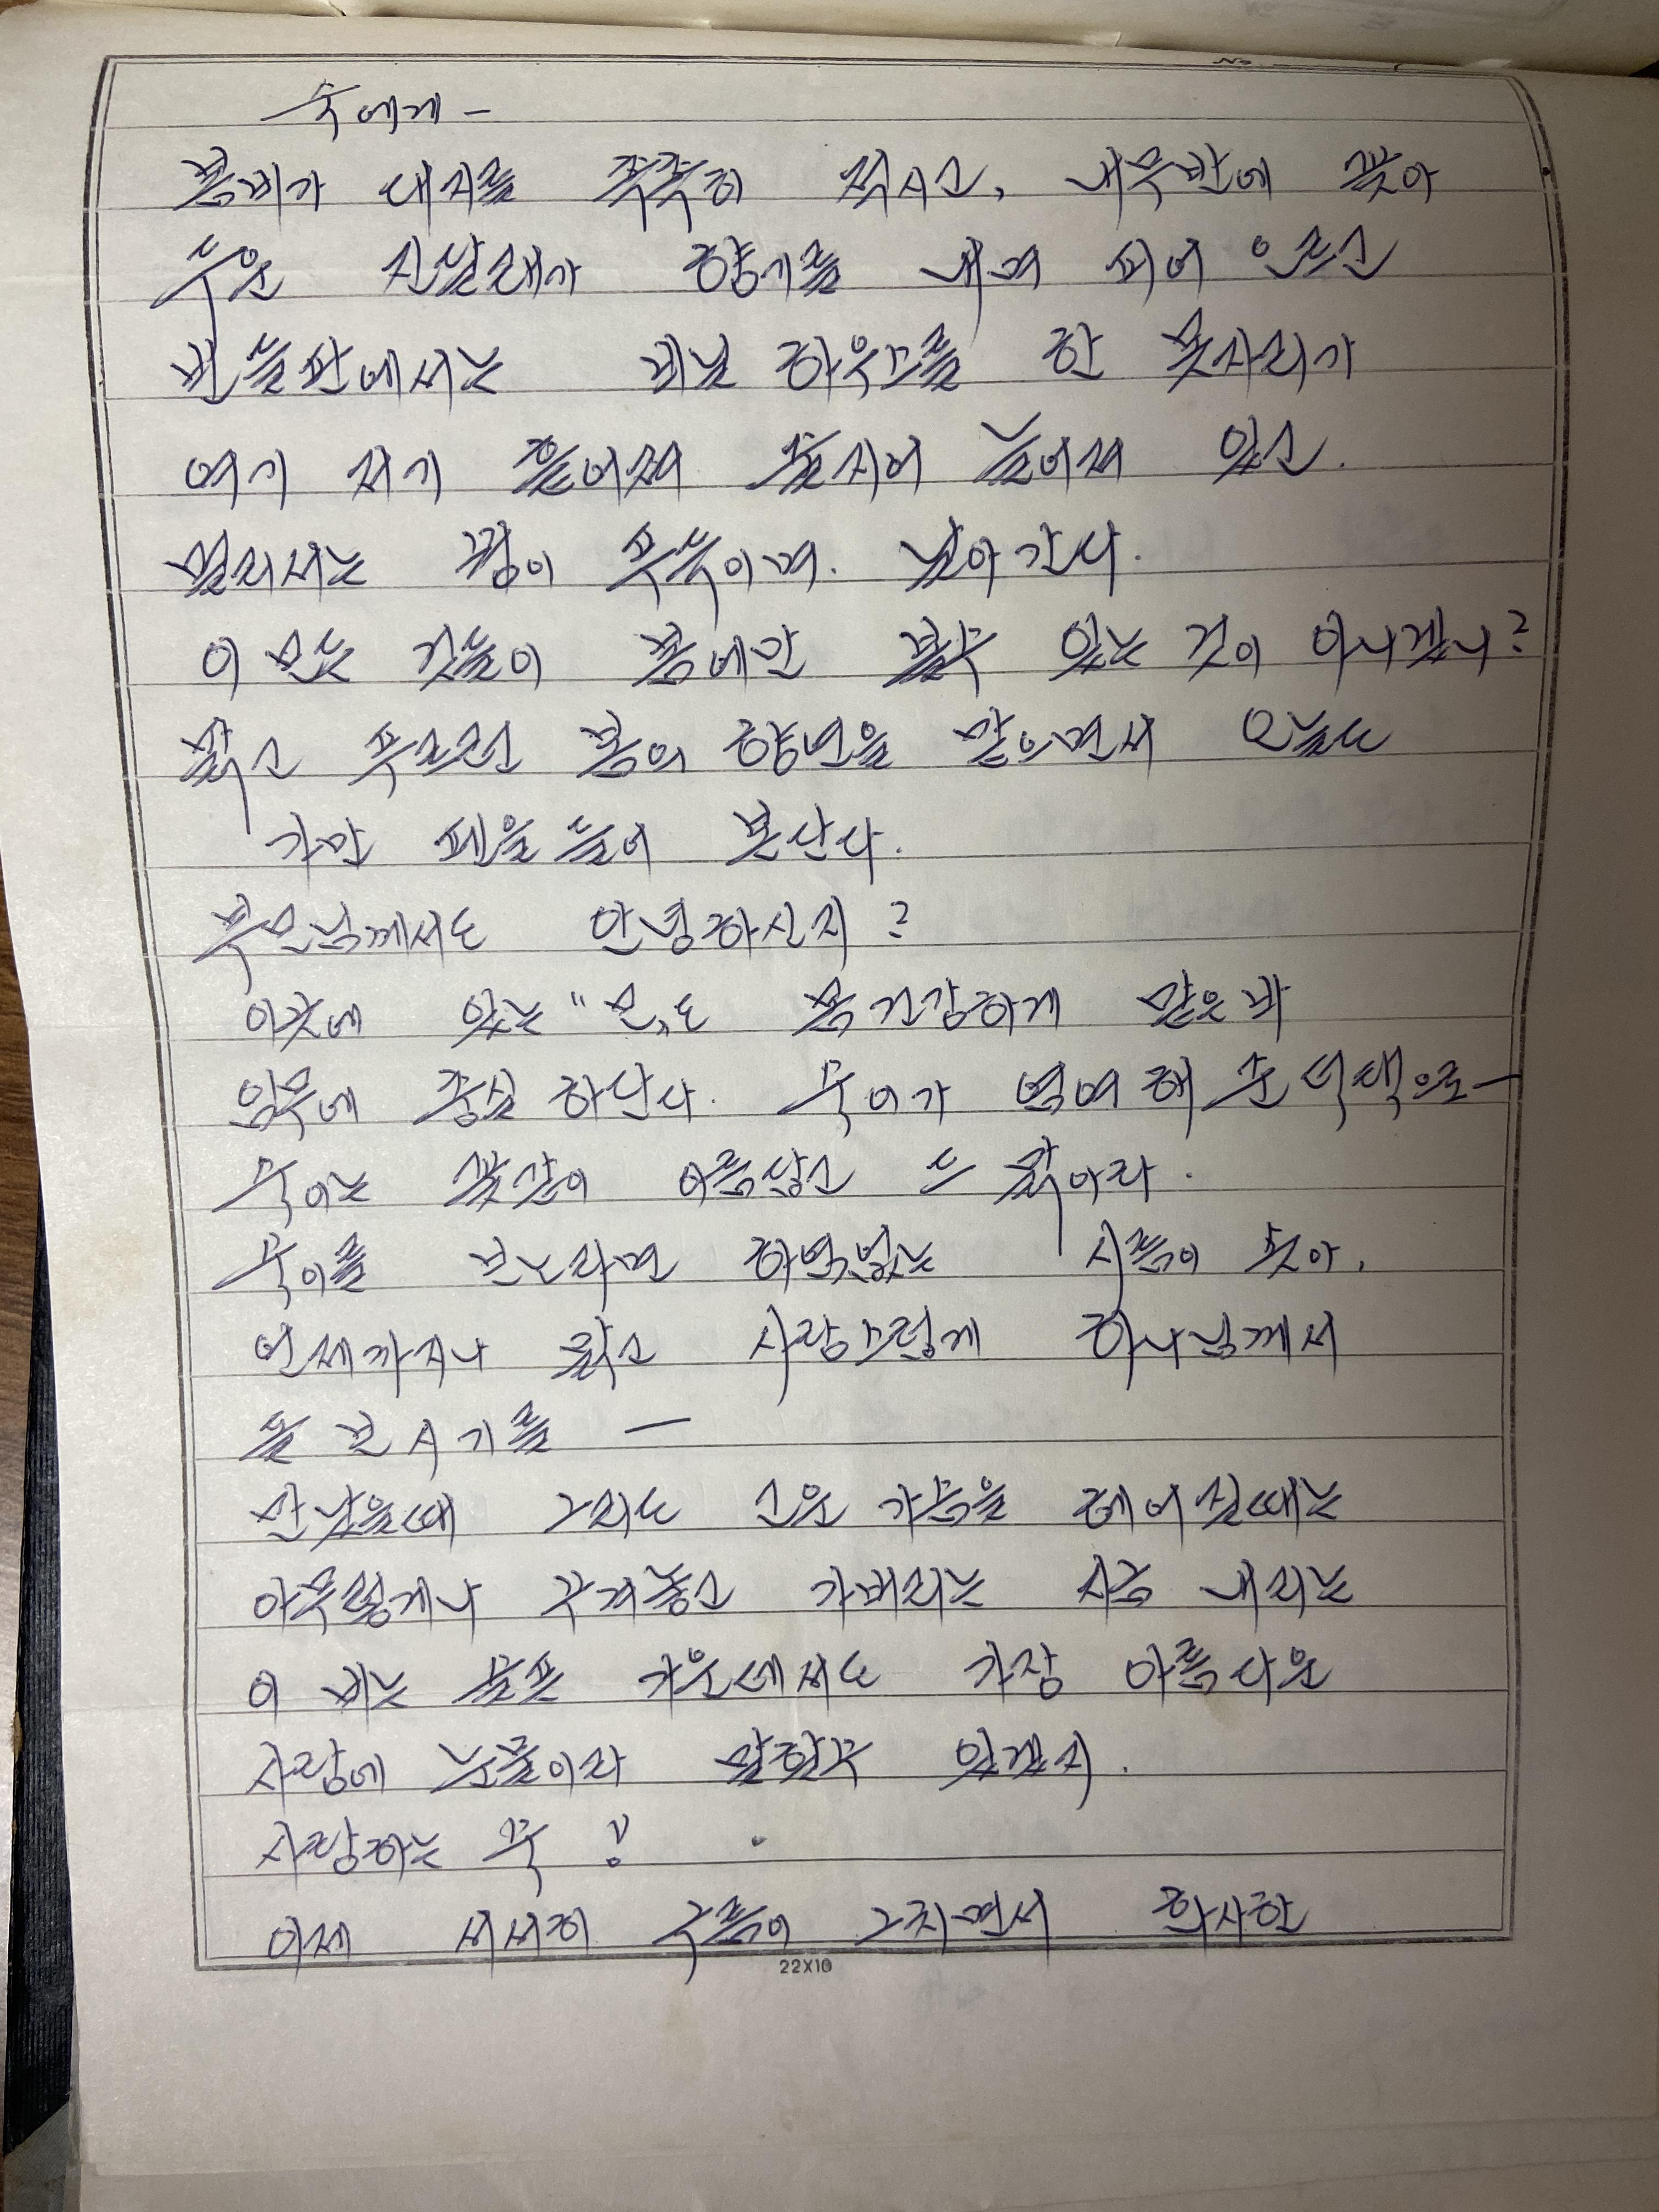 숙에게 -
봄비가 대지를 촉촉히 적시고, 내무반에 꽂아
두운 진달래가 향기를 내며 피어 오르고
벌판에서는 비닐 하우스를 한 못자리가
여기 저기 흩어져 줄지어 늘어져 있고.
멀리서는 꿩이 푸득이며. 날아간다.
이 모든 것들이 봄에만 볼수 있는 것이 아니겠니?
맑고 푸르런 봄의 향연을 맡으면서 오늘도
가만 펜을 들어 본단다.
부모님께서도 안녕하신지?
이곳에 있는 " "도 몸 건강하게 맡은 바
임무에 충실 하단다. 숙이가 염여해 준 덕택으로 —
숙이는 꽃같이 아름답고 맑아라.
숙이를 보노라면 하염없는 시름이 솟아,
언제까지나 맑고 사랑스럽게 하나님께서
돌보시기를 —
만났을때 그리도 고운 가슴을 헤어질때는
아무렇게나 구겨놓고 가버리는 지금 내리는
이 비는 슬픔 가운데서도 가장 아름다운
사랑에 눈물이라 말할수 있겠지.
사랑하는 숙!
이제 서서히 구름이 그치면서 화사한
22X10